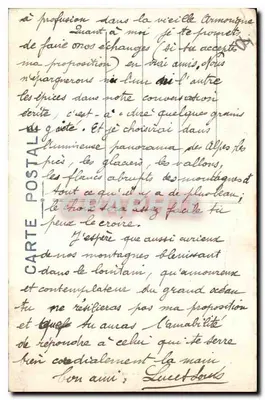 à profusion dans la vieille Armorique
Quant à moi, je te promets
de faire nos échanges (si tu acceptes
ma proposition) en bons amis, nous
n'épargnerons ni l'un ni l'autre
les épices dans notre conversation
écrite, c'est-à-dire quelques grains
de gaieté. Et je choisirai dans
l'immense panorama des Alpes les
pics, les glaciers, les vallons,
les flancs abrupts des montagnes et
tout ce qu'il y a de plus beau,
le choix assez facile tu
peux le croire.
J'espère que aussi curieux
de nos montagnes bleuissant
dans le lointain, qu'amoureux
et contemplateur du grand océan
tu ne résilieras pas ma proposition
et que tu auras l'amabilité
de répondre à celui qui te serre
bien cordialement la main
bon ami :
CARTE POSTALE